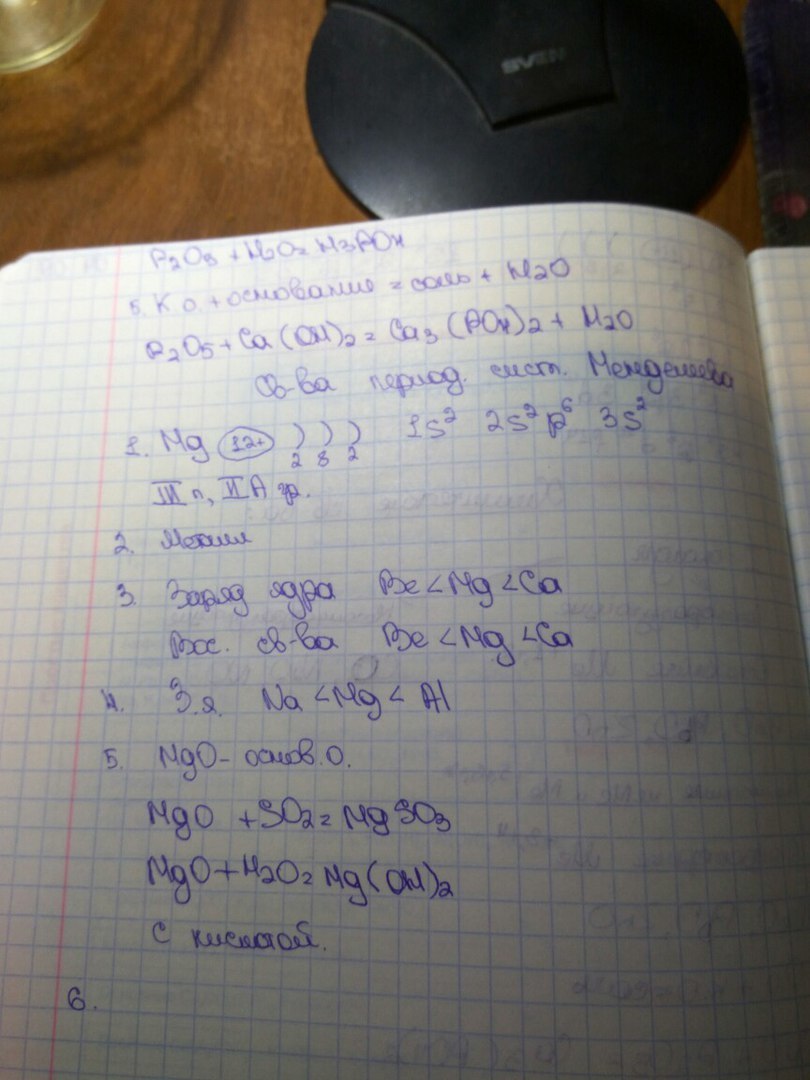 SVEN
P2O5 + H2O = H3PO4
5. К.о. + основание = соль + H2O
P2O5 + Ca(OH)2 = Ca3(PO4)2 + H2O
Св-ва период. сист. Менделеева
1. Mg 12+ ) ) ) 1s² 2s² p⁶ 3s²
2 8 2
III п, II А гр.
2. Металл
3. Заряд ядра Be < Mg < Ca
Вос. св-ва Be < Mg < Ca
4. З.я. Na < Mg < Al
5. MgO - основ. О.
MgO + SO2 = MgSO3
MgO + H2O = Mg(OH)2
С кислотой.
6.